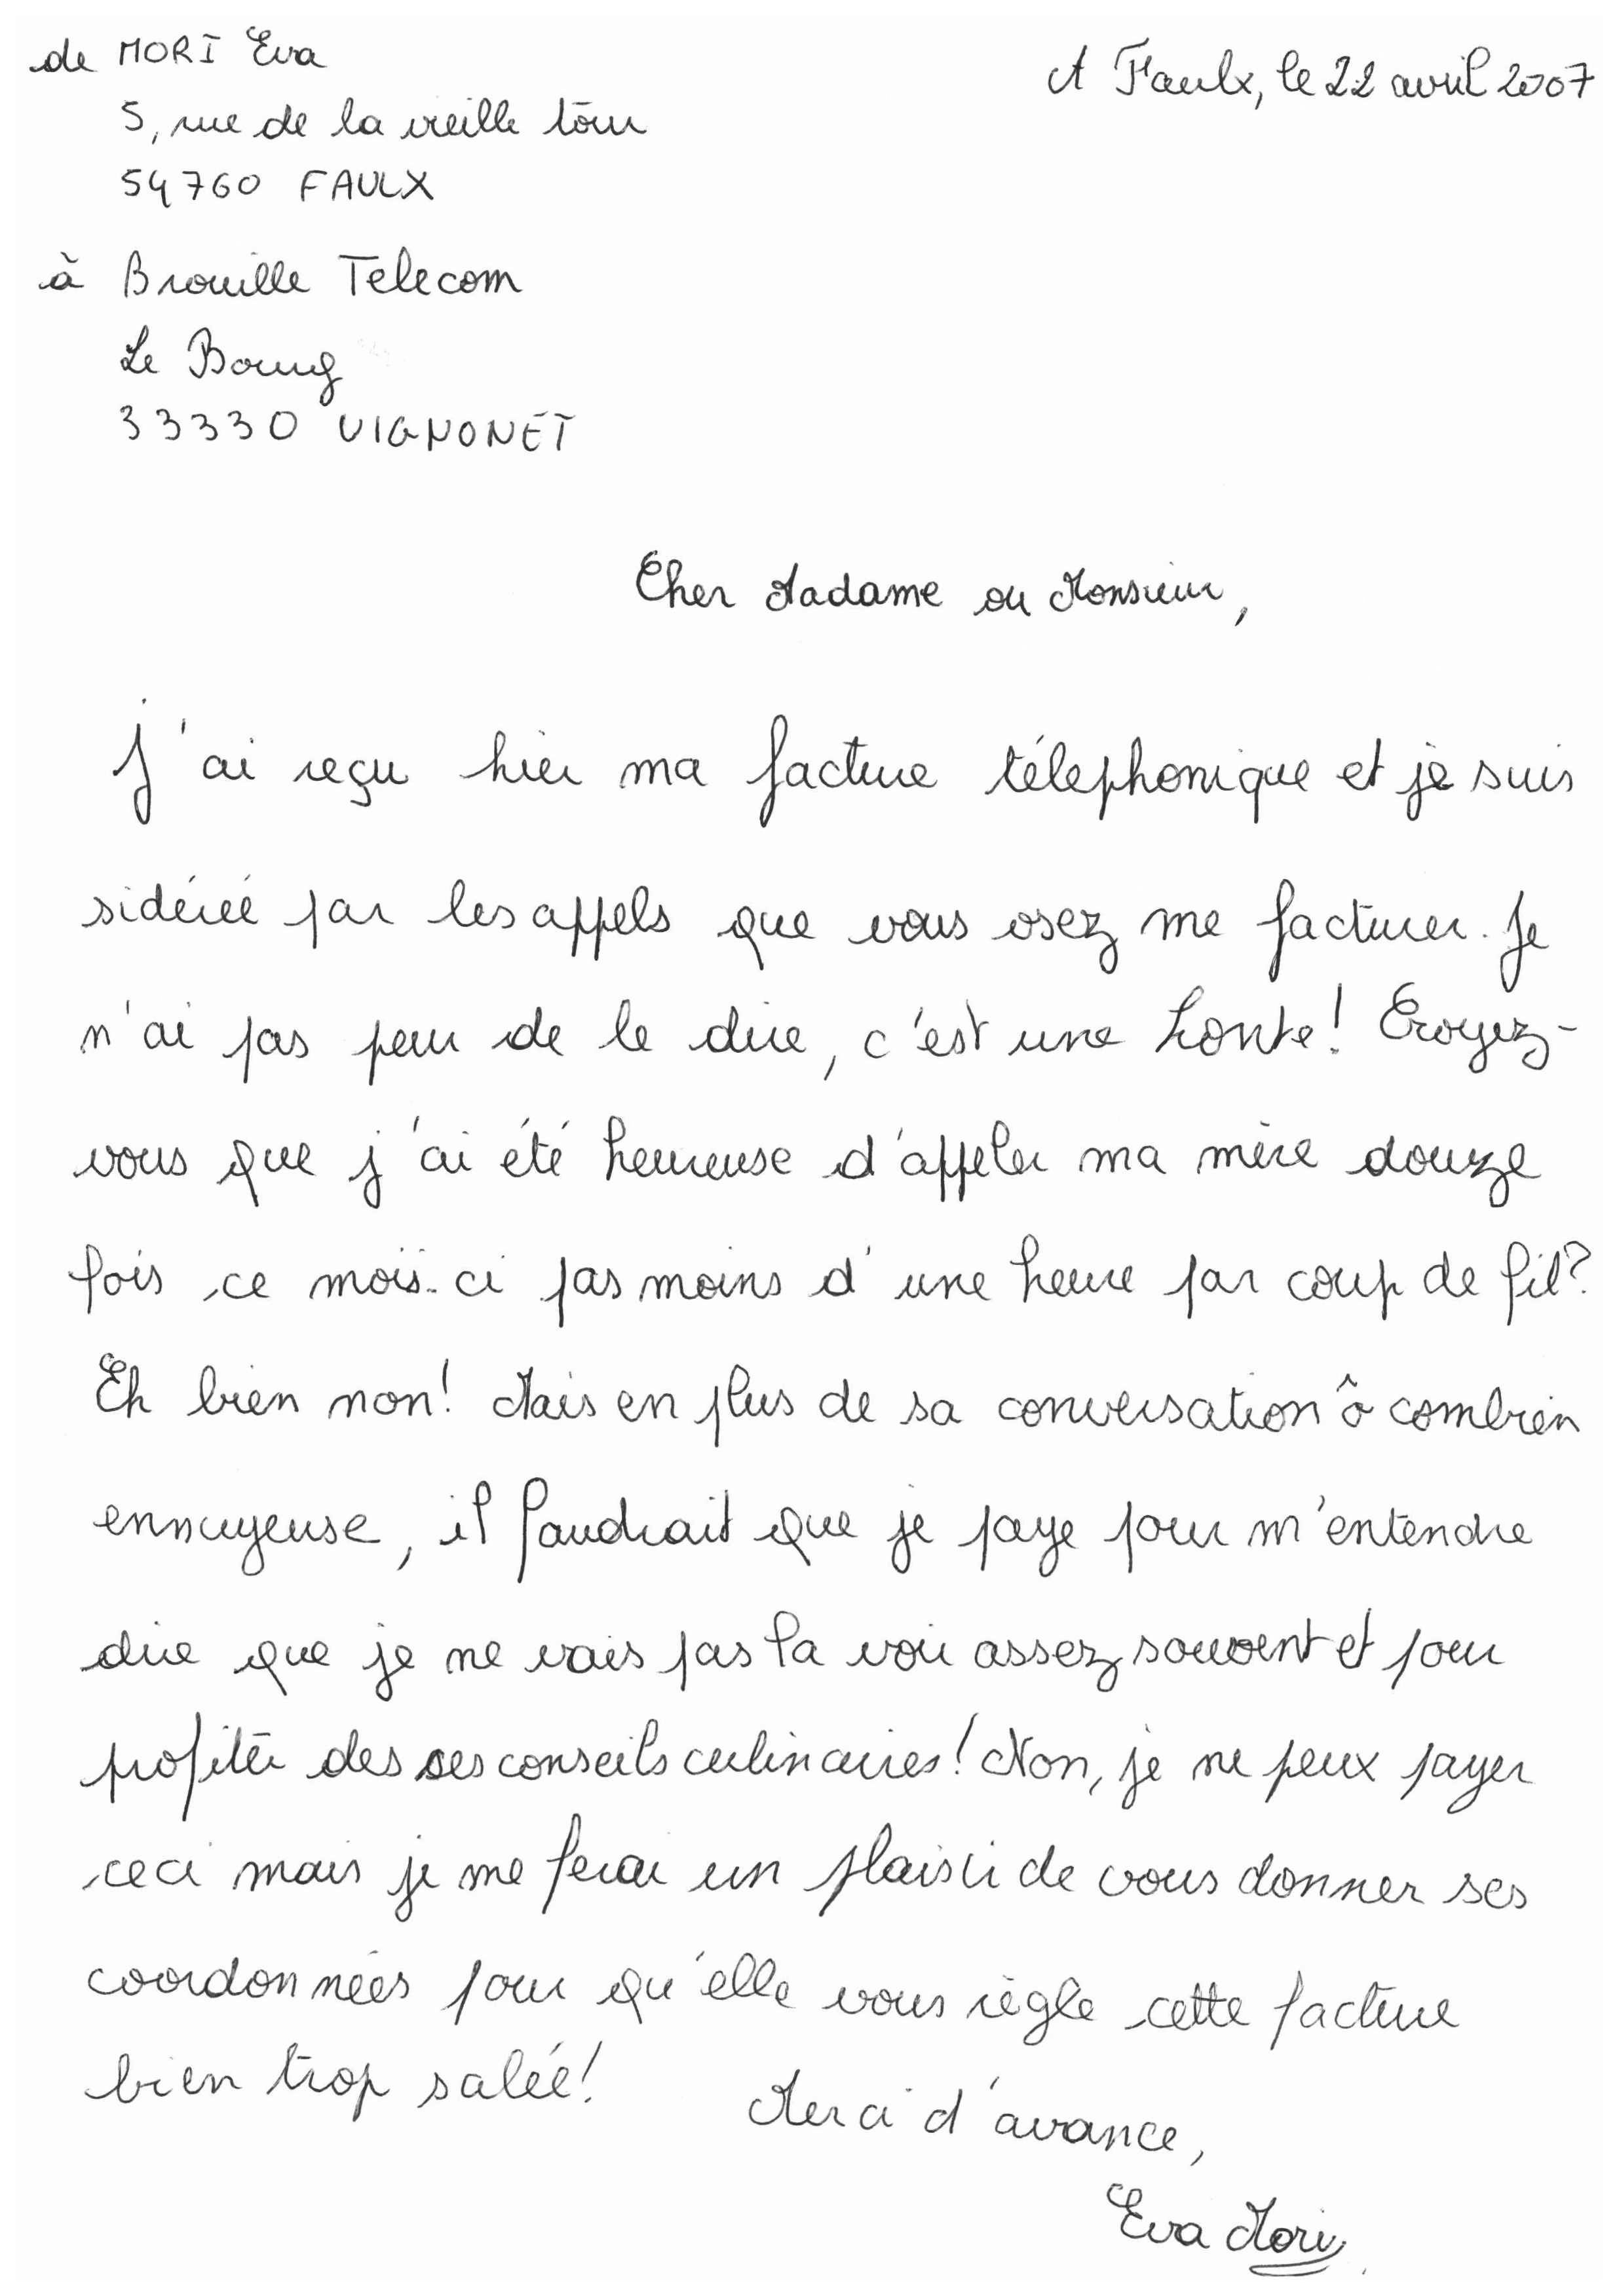 de MORI Eva
A Faulx, le 22 avril 2007
5, rue de la vieille tour
54760 FAULX
à Brouille Telecom
Le Bourg
33330 VIGNONET
Cher Madame ou Monsieur,
J'ai reçu hier ma facture téléphonique et je suis
sidérée par les appels que vous osez me facturer. Je
n'ai pas peur de le dire, c'est une honte! Croyez-
vous que j'ai été heureuse d'appeler ma mère douze
fois ce mois-ci pas moins d'une heure par coup de fil?
Eh bien non! Mais en plus de sa conversation ô combien
ennuyeuse, il faudrait que je paye pour m'entendre
dire que je ne vais pas la voir assez souvent et pour
profiter des ses conseils culinaires! Non, je ne peux payer
ceci mais je me ferai un plaisir de vous donner ses
coordonnées pour qu'elle vous règle cette facture
bien trop salée!
Merci d'avance,
Eva Mori